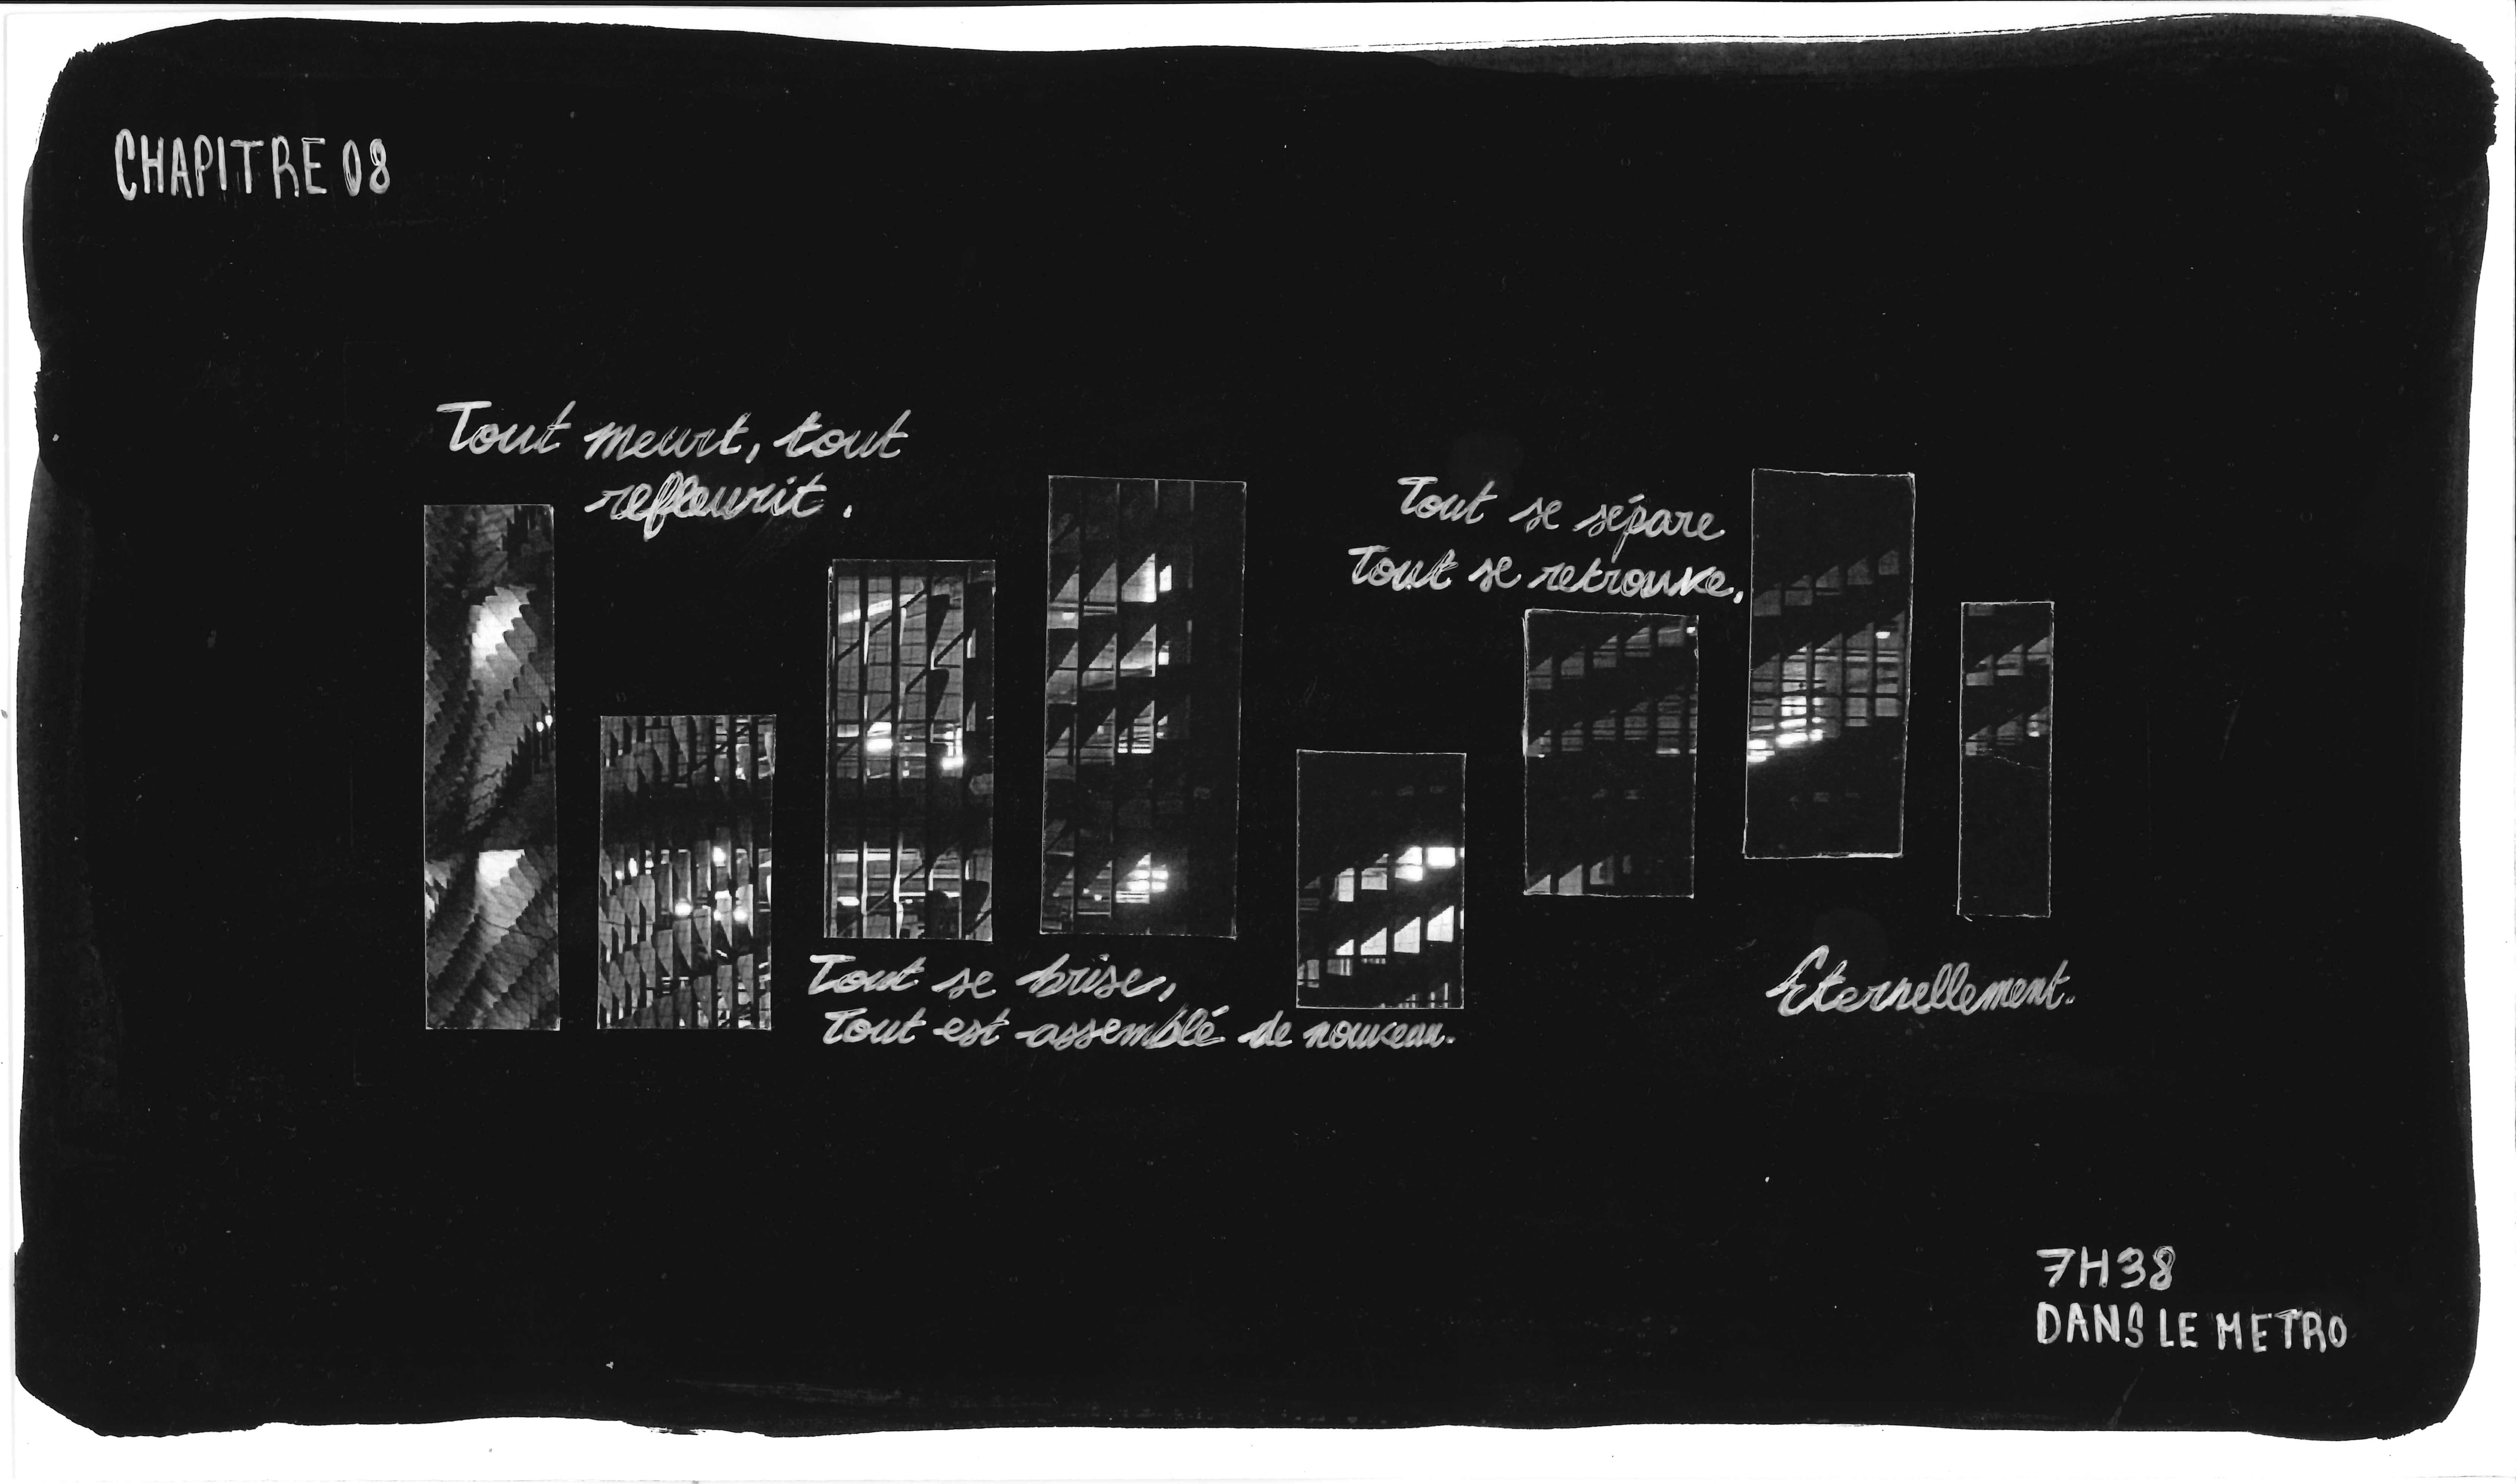 CHAPITRE 08
Tout meurt, tout
refleurit.
Tout se brise,
Tout est assemblé de nouveau.
Tout se sépare
Tout se retrouve.
Eternellement.
7H38
DANS LE METRO